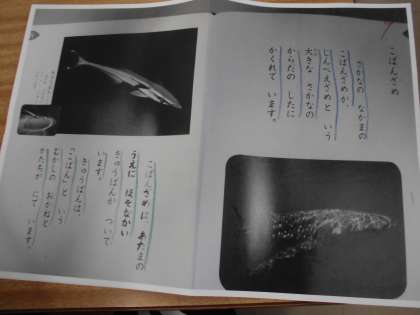 こばんざめ
さかなの なかまの
こばんざめが、
じんべえざめと いう
大きな さかなの
からだの したに
かくれて います。
こばんざめは あたまの
うえに ほそながい
きゅうばんが ついて
います。
きゅうばんは、
「こばん」と いう
むかしの おかねと
かたちが にて います。